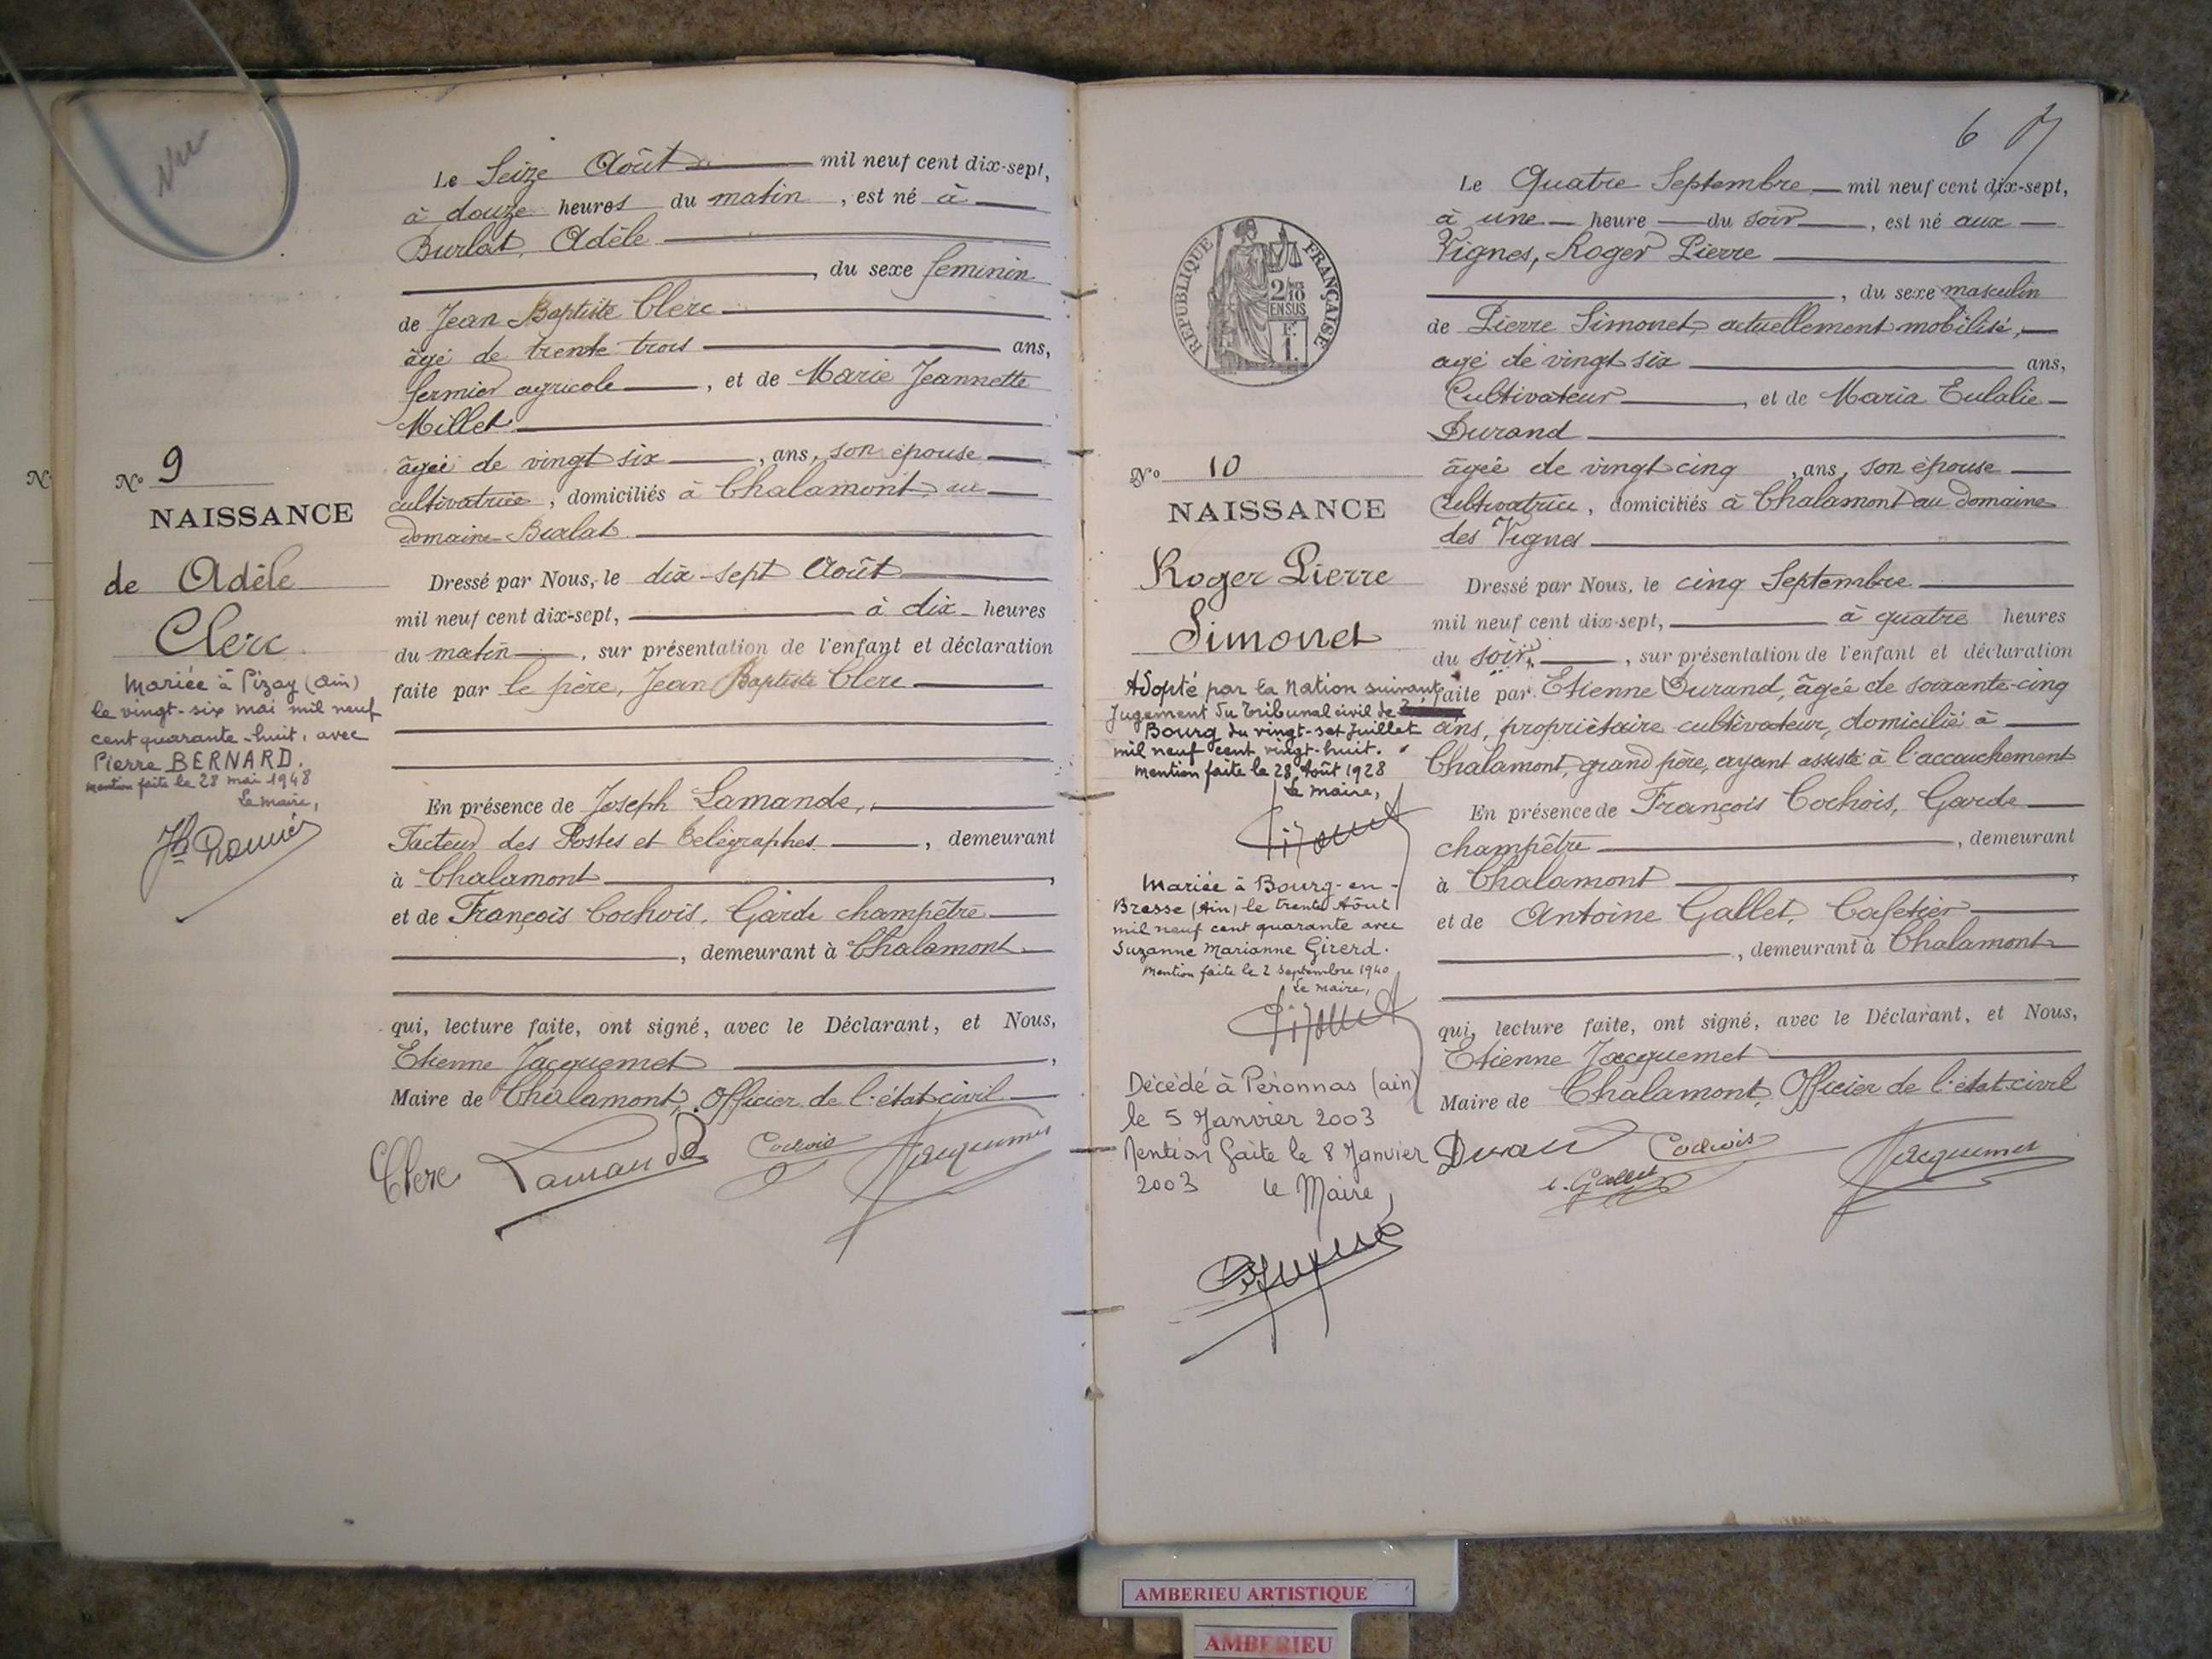 vu
Le Seize Août mil neuf cent dix-sept,
à douze heures du matin, est né à
Burlat, Adèle
, du sexe feminin
de Jean Baptiste Clerc
âgé de trente trois ans,
fermier agricole, et de Marie Jeannette
Millet
âgée de vingt six, ans, son épouse
cultivatrice, domiciliés à Chalamont au
domaine Burlat
Dressé par Nous, le dix-sept Août
mil neuf cent dix-sept, à dix heures
du matin, sur présentation de l'enfant et déclaration
faite par le père, Jean Baptiste Clerc
En présence de Joseph Lamande,
Facteur des Postes et Télégraphes, demeurant
à Chalamont,
et de François Cochois, Garde champêtre
, demeurant à Chalamont
qui, lecture faite, ont signé, avec le Déclarant, et Nous,
Etienne Jacquemet,
Maire de Chalamont, Officier de l'état civil
Clerc Lamande Cochois Jacquemet
N
No 9
NAISSANCE
de Adèle
Clerc
Mariée à Pizay (Ain)
le vingt-six mai mil neuf
cent quarante-huit, avec
Pierre BERNARD.
mention faite le 28 mai 1948
Le maire,
6
REPUBLIQUE FRANÇAISE
2/10
EN SUS
F.
1.
No 10
NAISSANCE
Roger Pierre
Simonet
Adopté par la Nation suivant
Jugement du Tribunal civil de
Bourg du vingt-sept Juillet
mil neuf cent vingt-huit.
mention faite le 28 Août 1928
Le maire,
Mariée à Bourg-en-
Bresse (Ain) le trente Août
mil neuf cent quarante avec
Suzanne Marianne Girerd.
Mention faite le 2 septembre 1940
Le maire,
Décédé à Péronnas (ain)
le 5 Janvier 2003
Mention faite le 8 Janvier
2003 le Maire,
Le Quatre Septembre mil neuf cent dix-sept,
à une heure du soir, est né aux
Vignes, Roger Pierre
, du sexe masculin
de Pierre Simonet, actuellement mobilisé,
agé de vingt six ans,
Cultivateur, et de Maria Eulalie
Durand
âgée de vingt cinq, ans, son épouse
Cultivatrice, domiciliés à Chalamont au domaine
des Vignes
Dressé par Nous, le cinq Septembre
mil neuf cent dix-sept, à quatre heures
du soir, sur présentation de l'enfant et déclaration
faite par Etienne Durand, âgée de soixante-cinq
ans, propriètaire cultivateur, domicilié à
Chalamont, grand père, ayant assisté à l'accouchement
En présence de François Cochois, Garde
champêtre, demeurant
à Chalamont,
et de Antoine Gallet, Cafetier
, demeurant à Chalamont
qui, lecture faite, ont signé, avec le Déclarant, et Nous,
Etienne Jacquemet
Maire de Chalamont, Officier de l'état civil
Durand Cochois Jacquemet
Gallet
AMBERIEU ARTISTIQUE
AMBERIEU